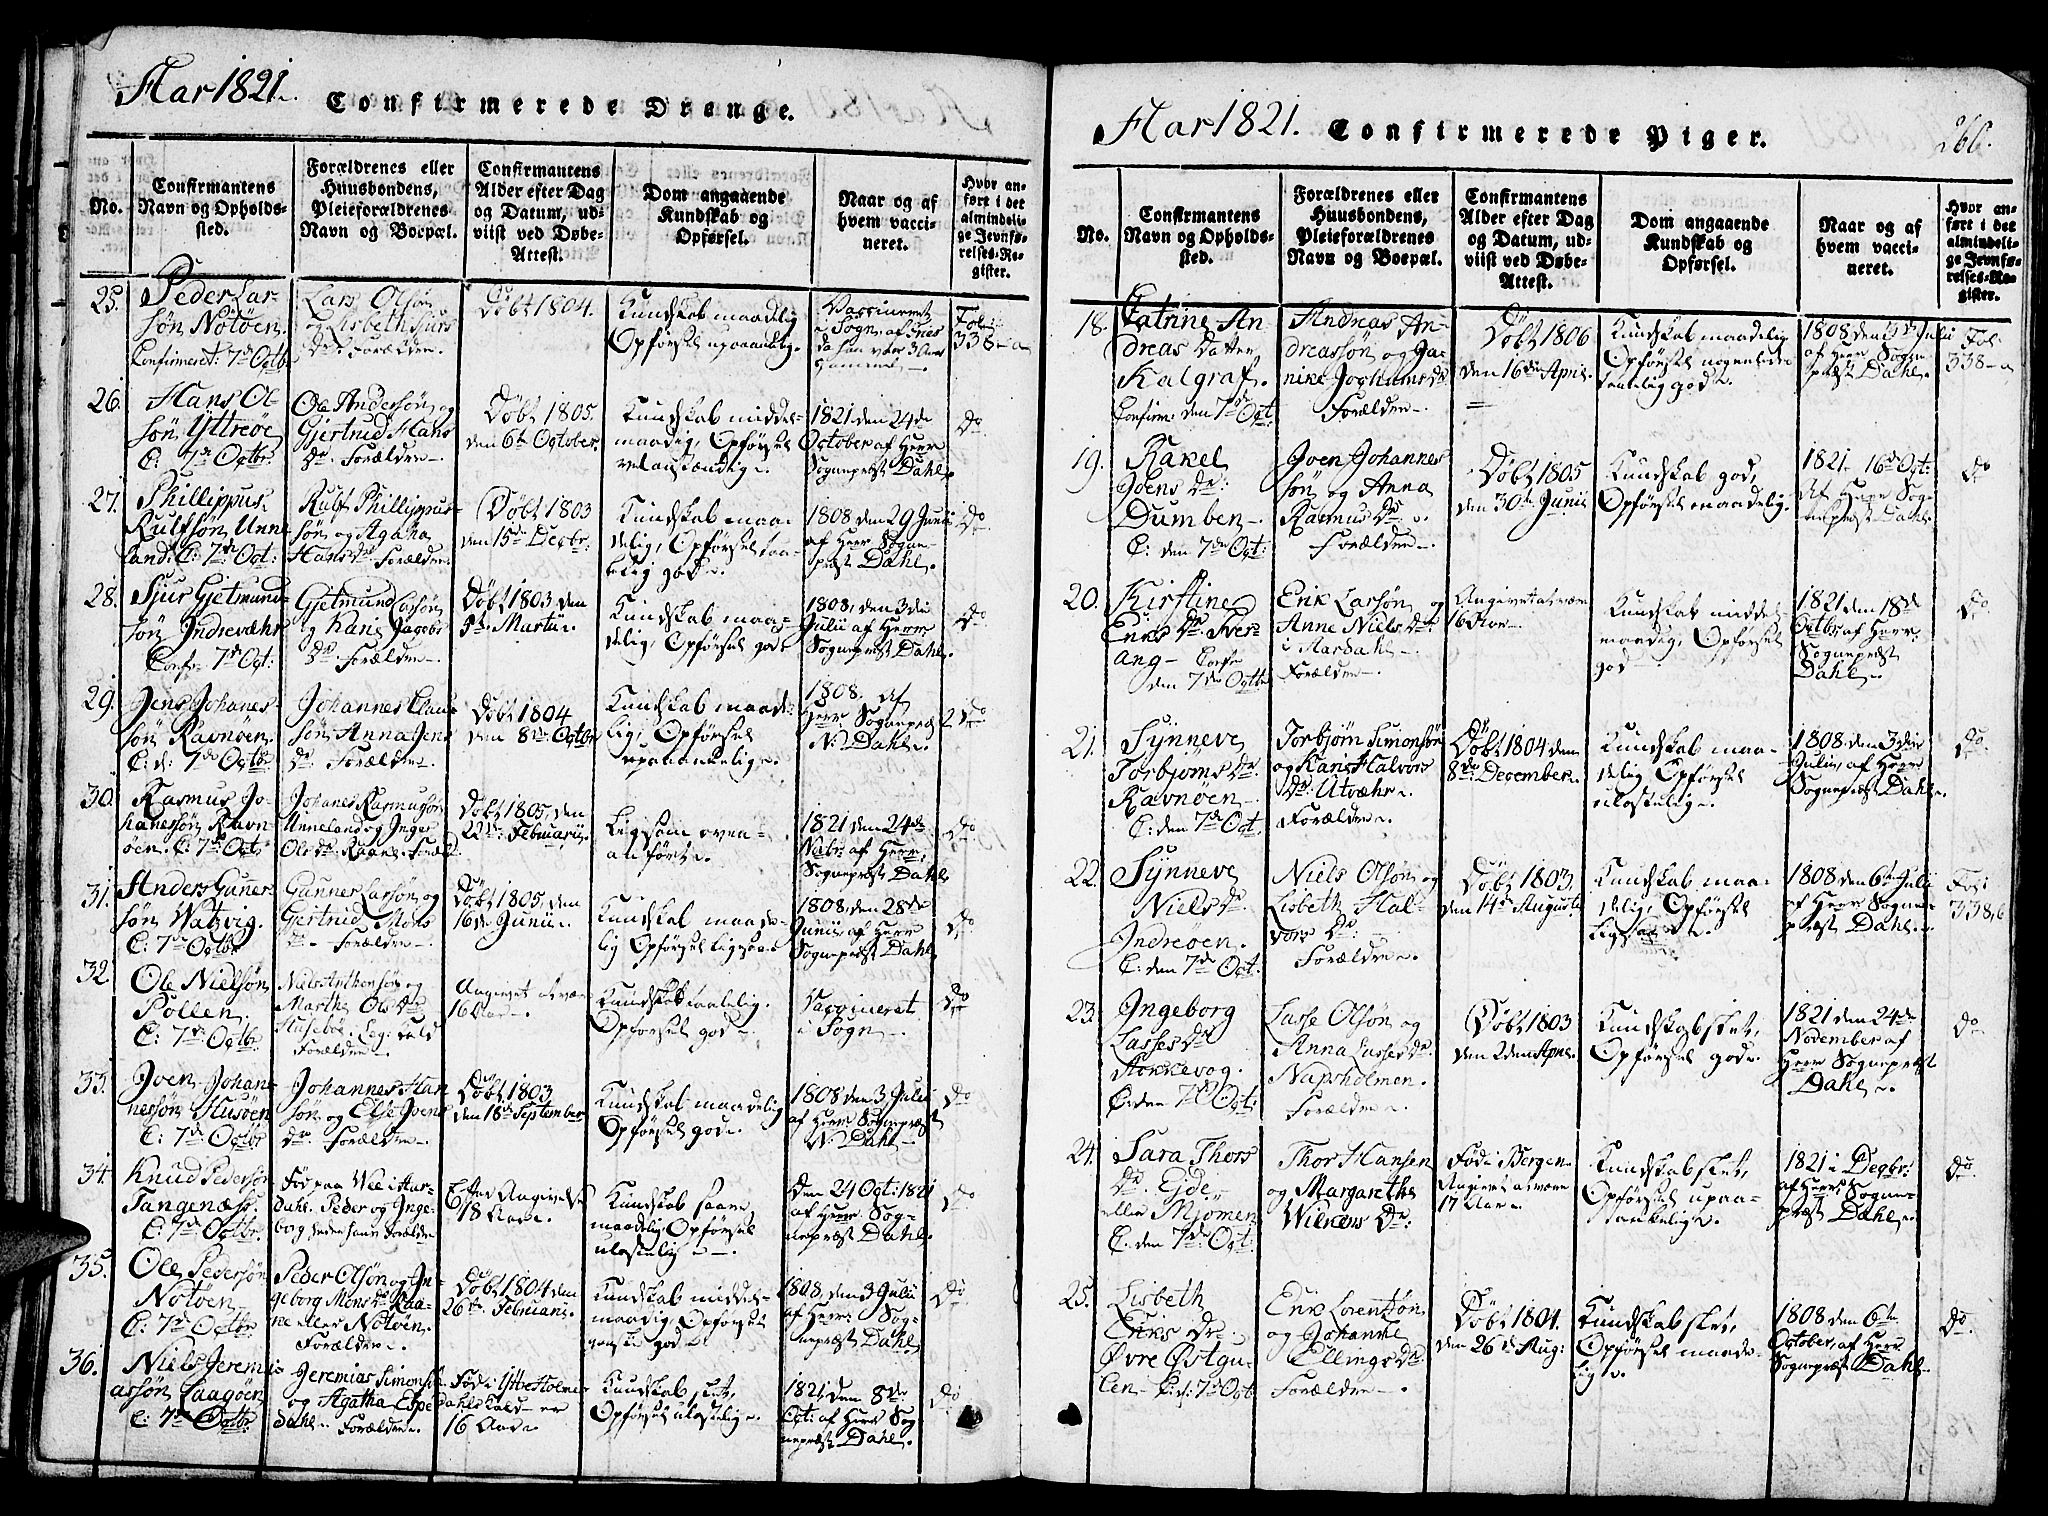 Aar 1821. Confirmerede Drenge.
No.
Confirmantens
Navn og Opholds-
sted.
Forældrenes eller
Huusbondens,
Pleieforældrenes
Navn og Boepæl.
Confirmantens
Alder efter Dag
og Datum, ud-
viist ved Døbe-
Attest.
Dom angaaende
Kundskab og
Opførsel.
Naar og af
hvem vacci-
neret.
Hvor an-
ført i det
almindeli-
ge Jevnfø-
relses-Re-
gister.
25.
Peder Lar-
søn Notøen
Confirmeret: 7de Octbr
Lars Olsøn
og Lisbeth Sjurs
Dr. Forældre.
Døbt 1804.
Kundskab maadelig
Opførsel upaaanklig.
Vaccineret
i Sogn
da han var 3 Aar
gammel
Fol:
338-a
26.
Hans Ol-
søn Yttreøe
C: 7de Octbr.
Ole Andersøn og
Gjertrud Hans
Dr. Forældre
Døbt 1805.
den 6te October.
Kundskab middel-
maadig, Opførsel
velanstændig.
1821 den 24de
October af Herr
Sognepræst Dahl.
Do
27.
Phillippus
Rulfsøn Unne
land: C: 7de Oct:
Rulf Phillippus-
søn og Agatha
Hans Dr Forældre
Døbt 1803
den 15de Decbr:
Kundskab maa-
delig, Opførsel taa-
lelig god.
1808 den 29 Junii
af Herr Sogne-
præst Dahl.
Do
28.
Sjur Gjetmund-
søn Indrevæhr
Conf: 7de Oct:
Gjetmund Larsøn
og Karie Jacobs
Dr. Forældre
Døbt 1803, den
Martii.
Kundskab maa-
delig, Opførsel god.
1808, den 3die
Julii af Herr
Sognepræst Dahl
Do
29.
Jens Johanes
søn Ravnøen
C: d: 7de Octbr
Johannes Claus
søn Anna Jens
Dr. Forældre
Døbt 1804
den 8de Octbr
Kundskab maade-
lig, Opførsel
upaaankelig.
1808. af
Herr Sognepræst
N: Dahl.
Do
30.
Rasmus Jo-
hanessøn Ravn-
øen. C: 7de Oct:
Johanes Rasmussøn
Unneland og Inger
Ols Dr. Foræl
Døbt 1805, den
22de Februarii
Ligsom oven-
anført.
1821 den 24de
Novbr: af Herr
Sognepræst Dahl
Do
31.
Anders Guner-
søn Watzvig.
C: 7de Octbr
Gunner Larsøn og
Gjertrud Mons
Dr Forældre
Døbt 1805, den
16de Junii
Kundskab maade-
lig Opførsel ligesaa
1808 den 28de
Junii af Herr
Sognepræst Dahl
Do
32.
Ole Nielsøn
Pollen.
C: 7de Octbr.
Niels Anthonsøn og
Marthe Ols Dr
Husebøe
Forældre
Angivet at være
16 Aar
Kundskab taalelig.
Opførsel god.
Vaccineret
i Sogn
Do
33.
Joen Johan-
nessøn Husøen
C: 7de Octbr
Johannes Han
søn og Else Joens
Dr Forældre
Døbt 1803
den 18de September
Kundskab maadelig
Opførsel god.
1808 den 3 Julii
af Herr Sognepræst
N: Dahl
Do
34.
Knud Pedersøn
Tangenæs.
C: 7de Octbr.
Fød paa Wie i Aar-
dahl. Peder og Inge-
borg Pedersen Forældre
Efter Angivelse
18 Aar
Kundskab
maadelig Opførsel
ulastelig
den 24 Oct: 1821
af Herr Sog-
nepræst Dahl.
Do
35.
Ole Pedersøn
Notøen
C: 7de Octbr
Peder Olsøn og In-
geborg Mons Dr Kaa-
ne eller Notøen.
Forældre
Døbt 1804 den
26de Februarii.
Kundskab middel-
maadig, Opførsel
ganske god
1808, den 3 Julii
af Herr Sog-
nepræst Dahl
Do
36.
Niels Jeremi-
assøn Laagøen
C: 7de Octbr.
Jeremias Simonsøn
og Agatha Espe
Dahl Forældre.
Fød i Ytte Holme
Dahls Kald er
16 Aar
Kundskab slet,
Opførsel ulastelig.
1821 den 8de
Oct: af Herr Sog-
nepræst Dahl.
Do
Aar 1821. Confirmerede Piger.
266.
No.
Confirmantens
Navn og Opholds-
sted.
Forældrenes eller
Huusbondens,
Pleieforældrenes
Navn og Boepæl.
Confirmantens
Alder efter Dag
og Datum, ud-
viist ved Døbe-
Attest.
Dom angaaende
Kundskab og
Opførsel.
Naar og af
hvem vacci-
neret.
Hvor an-
ført i det
almindeli-
ge Jevnfø-
relses-Re-
gister.
18.
Catrine An
dreas Datter
Kalgraf.
Confirm: den 7de Oct
Andreas An-
dreassøn og Ja-
nike Jochums Dr
Forældre
Døbt 1806
den 16de April
Kundskab maadelig
Opførsel nogenledes
temelig god.
1808 den 3die Julii
af Herr Sogne
præst Dahl
Fol:
338-a
19.
Rakel
Joens Dr:
Dumben
C: den 7de Oct:
Joen Johannes
søn og Anna
Rasmus Dr
Forældre
Døbt 1805
den 30te Junii
Kundskab god,
Opførsel maadelig.
1821. 16de Oct:
af Herr Sog-
nepræst Dahl.
Do
20.
Kirstine
Eriks Dr Sver-
ang Conf:
den 7de Octbr
Erik Larsøn og
Anne Niels Dr
i Aardahl
Forældre
Angivet at være
16 Aar
Kundskab middel-
maadig, Opførsel
god
1821 den 18de
Octbr: af Herr
Sognepræst
Dahl.
Do.
21.
Synneve
Torbjørns Dr.
Ravnøen
C: den 7de Oct.
Torbjørn Simonsøn
og Karie Halvors
Dr. Utvæhr.
Forældre.
Døbt 1804 den
8de December.
Kundskab maa-
delig Opførsel
ulastelig.
1808 den 3die
Julii, af Herr
Sognepræst Dahl.
Do.
22.
Synneve
Niels Dr
Indreøen.
C: den 7de Oct.
Niels Olsøn og
Lisbeth Hal-
vors Dr:
Forældre.
Døbt 1803.
den 14de Augusti
Kundskab maa-
delig, Opførsel
ligesaa.
1808 den 6te Julii
af Herr Sogne-
præst Dahl.
Fol:
338,b
23.
Ingeborg
Lasses Dr
Stokkevog.
C: den 7de Oct:
Lasse Olsøn og
Anna Lasses Dr.
Napsholmen.
Forældre.
Døbt 1803
den 2den April.
Kundskab slet,
Opførsel god.
1821 den 24de
November af
Herr Sognepræst
Dahl.
Do
24.
Sara Thors
Dr. Eide
eller Mjømen
C. den 7de Oct:
Thor Hansen
og Margarethe
Wilkens Dr:
Fød i Bergen
Angivet at være
17 Aar
Kundskab slet,
Opførsel upaa-
ankelig.
1821 i Decbr:
af Herr Sogne-
præst Dahl.
Do
25.
Lisbeth
Eriks Dr.
Øvre Østgu-
len C: d: 7de Octb
Erik Lorentsøn
og Johanne
Ellings Dr
Forældre
Døbt 1804.
den 26de Aug:
Kundskab slet,
Opførsel maade-
lig.
1808 den 6te
October, af Herr
Sognepræst Dahl.
Do.